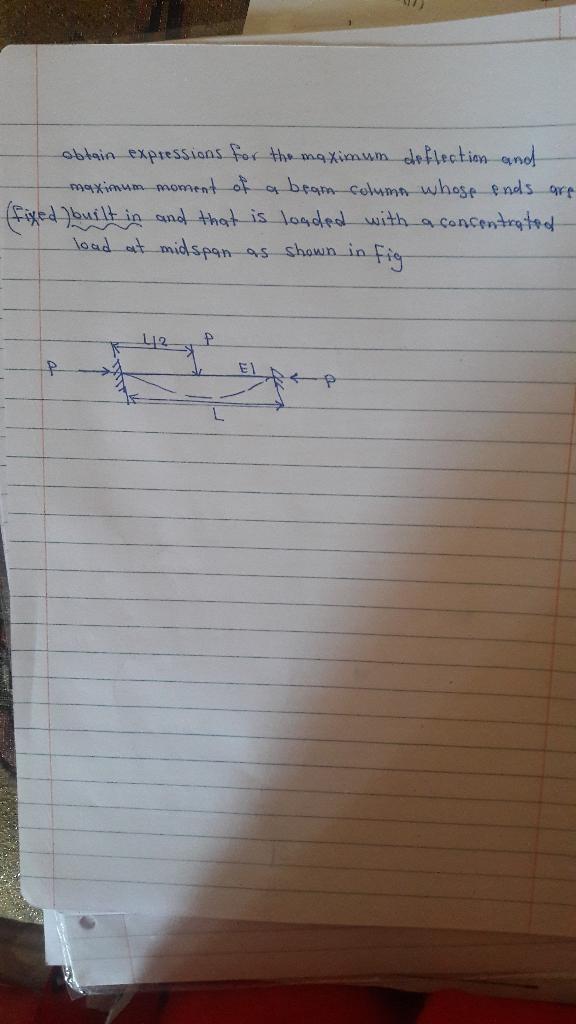 obtain expressions for the maximum deflection and
maximum moment of a beam column whose ends are
(fixed) built in and that is loaded with a concentrated
load at midspan as shown in fig
L/2 P
P EI P
L